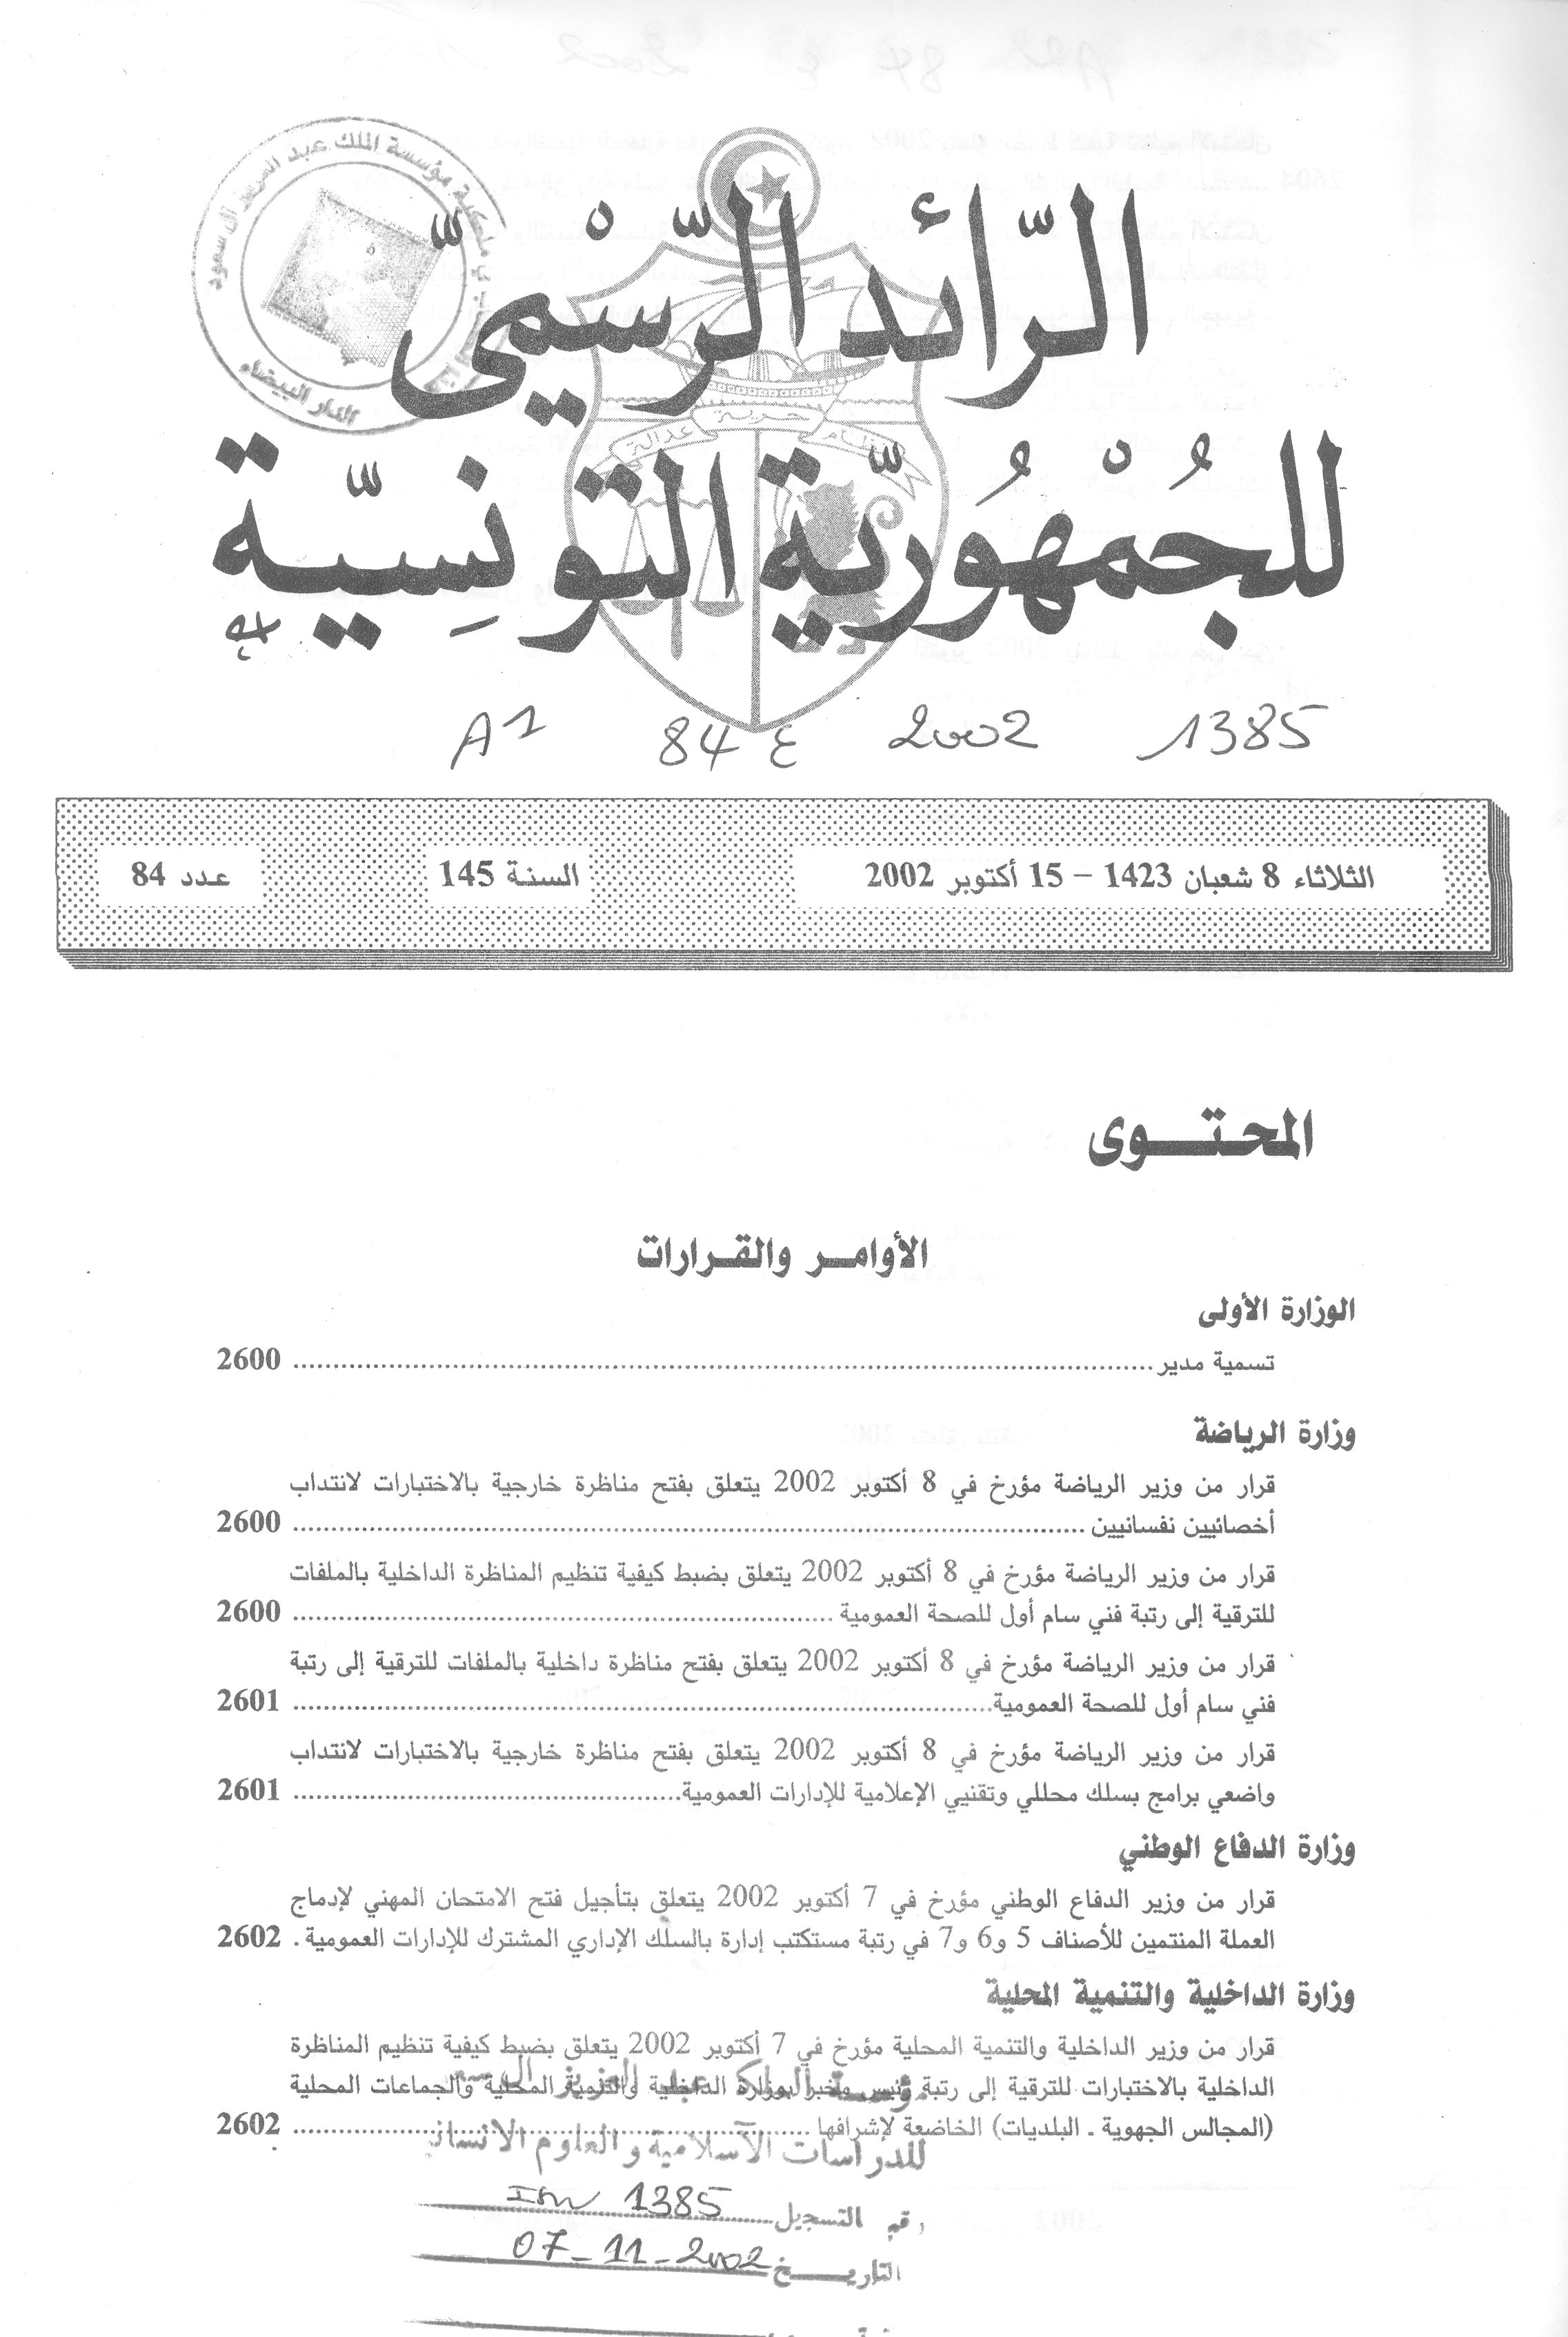 مؤسسة الملك عبد العزيز آل سعود
الدار البيضاء
الرّائد الرّسْميّ
نظام حرية عدالة
للجُمْهُوريّة التونِسيّة
A1 84 ع 2002 1385
الثلاثاء 8 شعبان 1423 – 15 أكتوبر 2002 السنة 145 عدد 84
المحتوى
الأوامر والقرارات
الوزارة الأولى
تسمية مدير 2600
وزارة الرياضة
قرار من وزير الرياضة مؤرخ في 8 أكتوبر 2002 يتعلق بفتح مناظرة خارجية بالاختبارات لانتداب
أخصائيين نفسانيين 2600
قرار من وزير الرياضة مؤرخ في 8 أكتوبر 2002 يتعلق بضبط كيفية تنظيم المناظرة الداخلية بالملفات
للترقية إلى رتبة فني سام أول للصحة العمومية 2600
قرار من وزير الرياضة مؤرخ في 8 أكتوبر 2002 يتعلق بفتح مناظرة داخلية بالملفات للترقية إلى رتبة
فني سام أول للصحة العمومية 2601
قرار من وزير الرياضة مؤرخ في 8 أكتوبر 2002 يتعلق بفتح مناظرة خارجية بالاختبارات لانتداب
واضعي برامج بسلك محللي وتقنيي الإعلامية للإدارات العمومية 2601
وزارة الدفاع الوطني
قرار من وزير الدفاع الوطني مؤرخ في 7 أكتوبر 2002 يتعلق بتأجيل فتح الامتحان المهني لإدماج
العملة المنتمين للأصناف 5 و6 و7 في رتبة مستكتب إدارة بالسلك الإداري المشترك للإدارات العمومية . 2602
وزارة الداخلية والتنمية المحلية
قرار من وزير الداخلية والتنمية المحلية مؤرخ في 7 أكتوبر 2002 يتعلق بضبط كيفية تنظيم المناظرة
الداخلية بالاختبارات للترقية إلى رتبة رئيس مخبر بوزارة الداخلية والتنمية المحلية والجماعات المحلية
(المجالس الجهوية ـ البلديات) الخاضعة لإشرافها 2602
مؤسسة الملك عبد العزيز آل
للدراسات الاسلامية و العلوم
رقم التسجيل 1385
التاريخ 07-11-2002